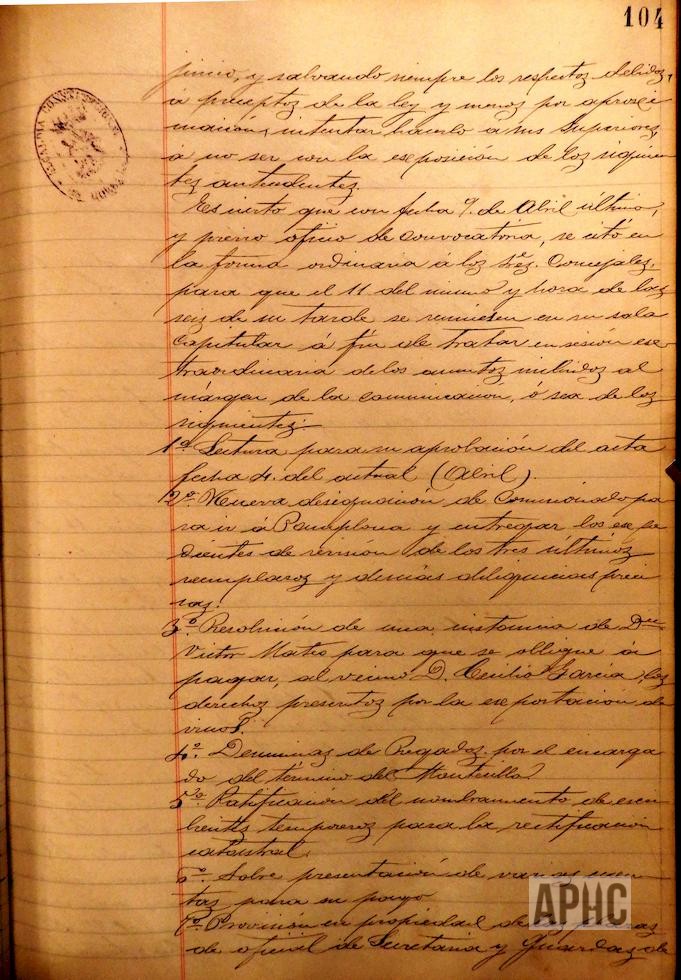 104
juicio, y salvando siempre los respetos debidos,
á preceptos de la ley y menos por aproxi
mación, intentar hacerlo a sus Superiores,
á no ser con la exposición de los siguien
tes antecedentes.
Es cierto que con fecha 9. de Abril último,
y previo oficio de convocatoria, se citó en
la forma ordinaria á los Sres. Concejales,
para que el 11 del mismo y hora de las
seis de su tarde se reuniesen en su sala
Capitular á fin de tratar en sesión ex-
traordinaria de los asuntos incluidos al
márgen de la comunicacion, ó sea de los
siguientes:
1º Lectura para su aprobación del acta
fecha 4. del actual (Abril).
2º. Nueva designación de Comisionado pa
ra ir á Pamplona y entregar los expe
dientes de revisión de los tres últimos
reemplazos y demás diligencias preci
sas.
3º. Resolución de una instancia de Dn
Victor Mateo para que se obligue á
pagar, al vecino D. Cecilio García, los
derechos prescritos por la exportación de
vinos.
4º. Denuncias de Regados por el encarga
do del término del Montecillo
5º. Ratificación del nombramiento de escri
bientes temporeros para la rectificación
catastral.
6º. Sobre presentación de varias cuen
tas para su pago
7º. Provisión en propiedad de las plazas
de oficial de Secretaria y Guardas de
APHC